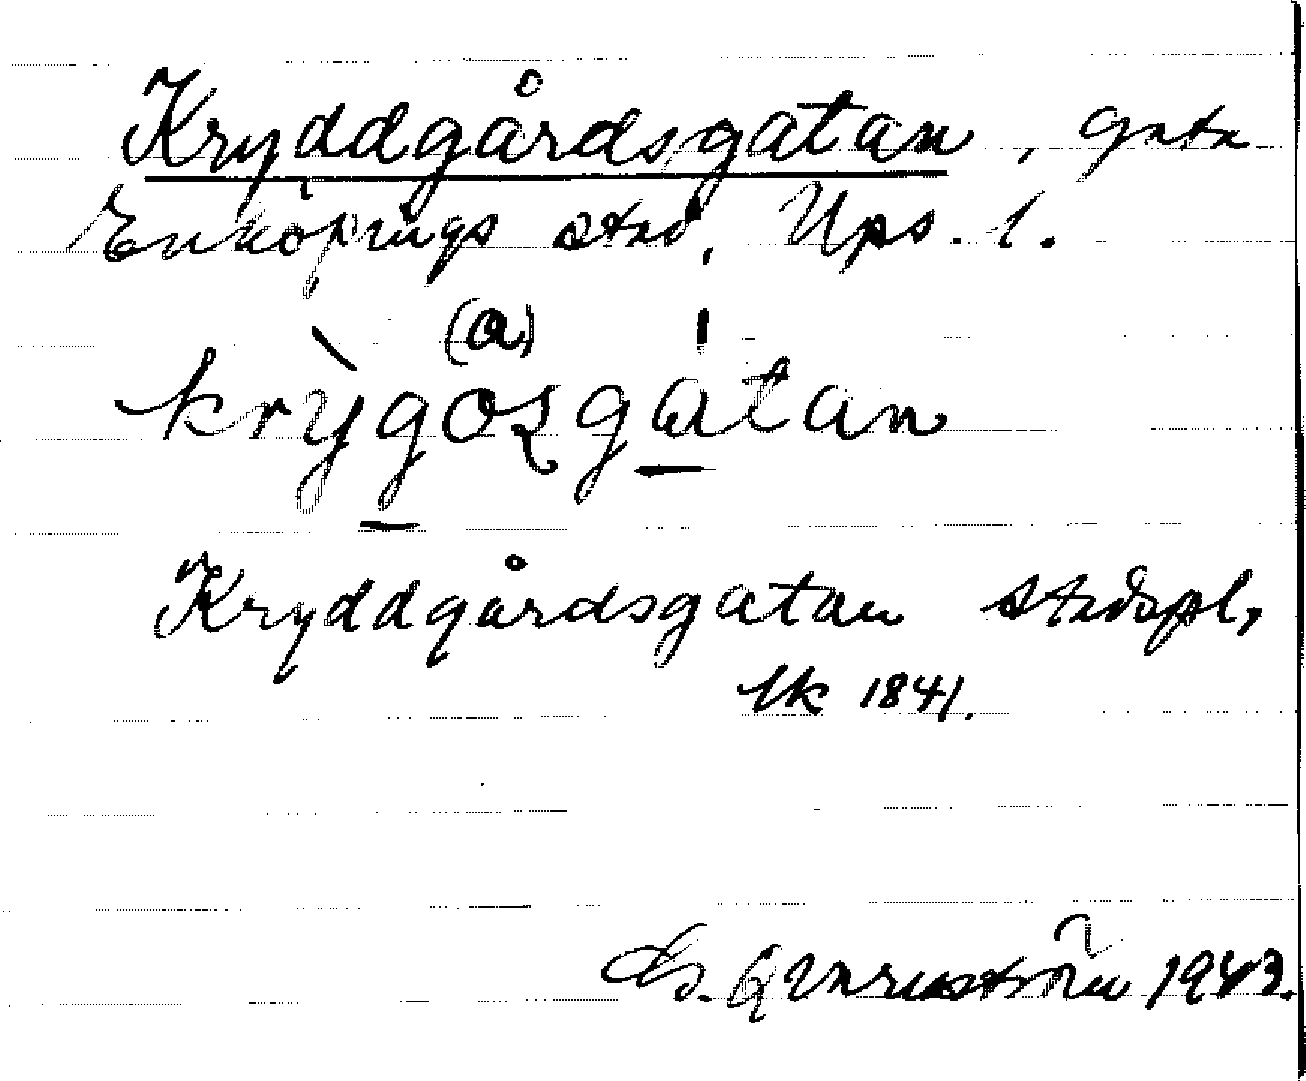 Kryddgårdsgatan, gata
Enköpings stad, Ups. l.
(a)
krỳgåsgátan
Kryddgårdsgatan stadspl,
lk 1841.
1943.